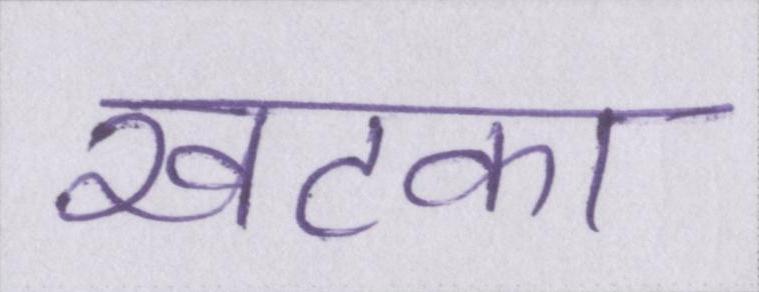 खटका